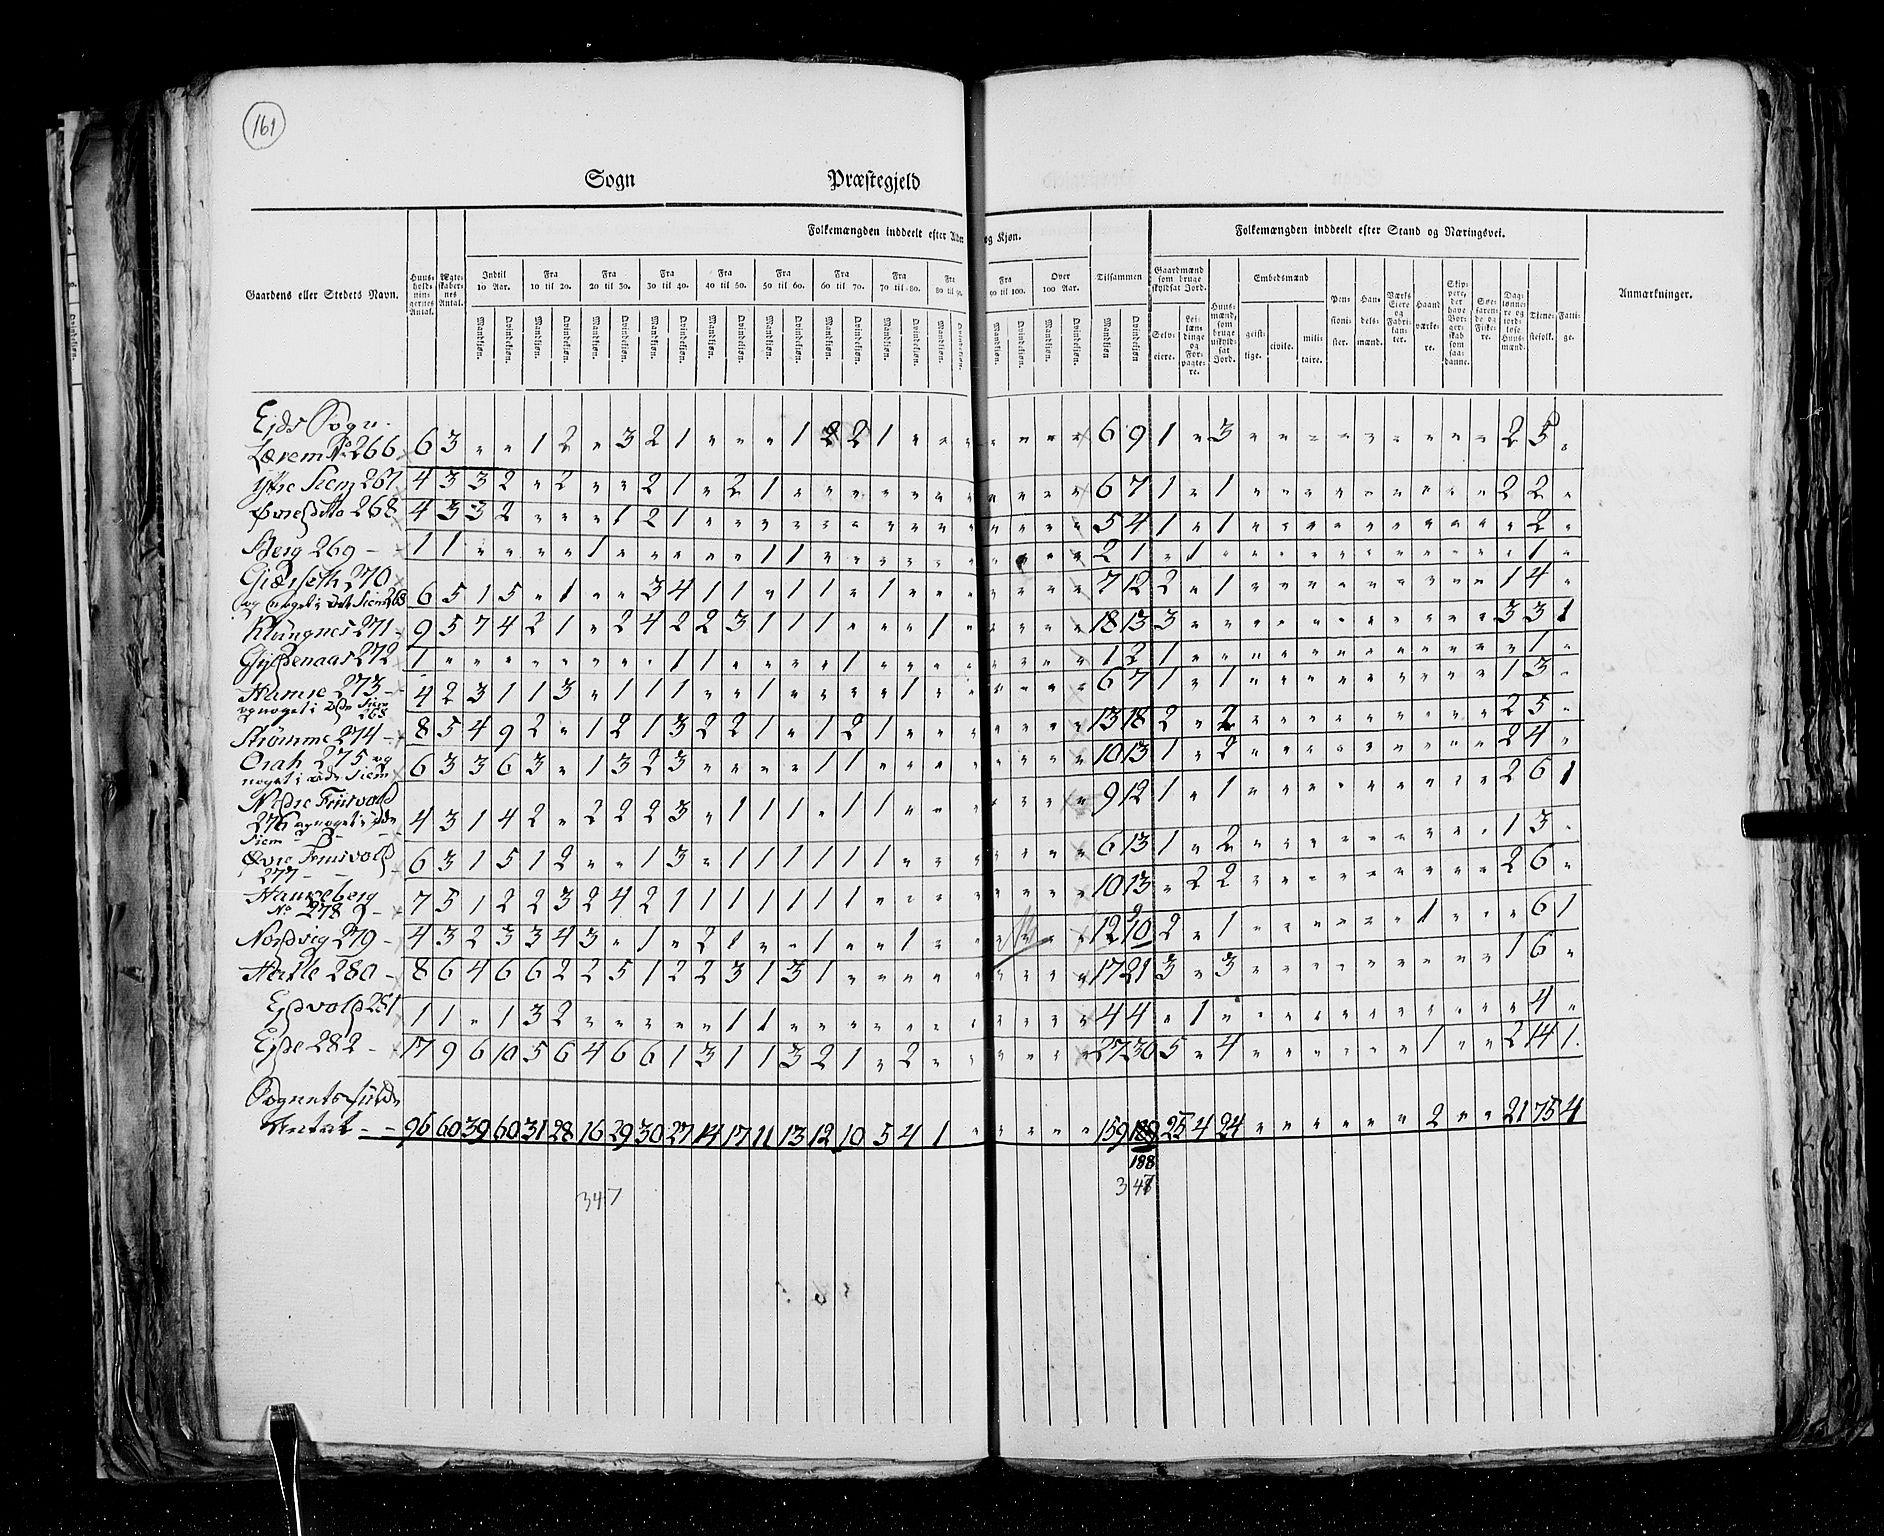 161
Sogn Præstegjeld
Folkemængden inddeelt efter Alder og Kjøn. Folkemængden inddeelt efter Stand og Næringsvei.
Gaardens eller Stedets Navn. Huusholdningernes Antal. Ægteskabernes Antal. Indtil 10 Aar. Fra 10 til 20. Fra 20 til 30. Fra 30 til 40. Fra 40 til 50. Fra 50 til 60. Fra 60 til 70. Fra 70 til 80. Fra 80 til 90. Fra 90 til 100. Over 100 Aar. Tilsammen Gaardmænd som bruge skyldsat Jord. Huusmænd, som bruge uskyldsat Jord. Embedsmænd Pensionister. Handelsmænd. Værks Eiere og Fabrikanter. Haandværkere. Skippere, der have Borgerskab som saadanne. Søefarende og Fiskere. Dagslønnere og jordløse Huusmænd. Tjenestefolk. Fanige. Anmærkninger.
Mandkjøn. Qvindekjøn. Mandkjøn. Qvindekjøn. Mandkjøn. Qvindekjøn. Mandkjøn. Qvindekjøn. Mandkjøn. Qvindekjøn. Mandkjøn. Qvindekjøn. Mandkjøn. Qvindekjøn. Mandkjøn. Qvindekjøn. Mandkjøn. Qvindekjøn. Mandkjøn. Qvindekjøn. Mandkjøn. Qvindekjøn. Mandkjøn Qvindekjøn Selveiere. Leilændinge og Forpagtere. geistlige. civile. militaire.
Ejds Sogn.
Lærem No 266 6 3 " " 1 2 " 3 2 1 " " " 1 2 2 1 " " " " " " " 6 9 1 " 3 " " " " " " " " " 2 5 "
Ytre Siem 267 4 3 3 2 " 2 " " 2 1 " 2 1 " " " " " " " " " " " 6 7 1 " 1 " " " " " " " " " 2 2 "
Øvre ditto 268 4 3 3 2 " " " 1 2 1 " " " " " " " " " " " " " " 5 4 1 " 1 " " " " " " " " " " 2 "
Berg 269 - 1 1 " " " " 1 " " " " " 1 1 " " " " " " " " " " 2 1 " 1 " " " " " " " " " " " 1 "
270 6 5 1 5 " 1 " " 3 4 1 1 " 1 1 " 1 " " " " " " " 7 12 2 " 1 " " " " " " " " " 1 4 "
og noget i Siem 268
Klungnes 271 9 5 7 4 2 1 " 2 4 2 2 3 1 1 1 " " " 1 " " " " " 18 13 3 " " " " " " " " " " " 3 3 1
Gyldenaas 272 1 " " " " " " " " 1 1 " " " " 1 " " " " " " " " 1 2 1 " " " " " " " " " " " " 1 "
273 - 4 2 3 1 1 3 " 1 1 1 " " 1 " " " " 1 " " " " " " 6 7 1 " 1 " " " " " " " " " 1 3 "
og noget i Siem
268
Strømme 274 - 8 5 4 9 2 " 1 2 1 3 2 2 1 " 1 2 1 " " " " " " " 13 18 2 " 2 " " " " " " " " " 2 5 "
275 og 6 3 3 6 3 " 1 3 2 3 " " " " 1 1 " " " " " " " " 10 13 1 " 2 " " " " " " " " " 2 4 "
noget i Siem
Nedre
276 og noget i 4 3 1 4 2 " 2 2 2 3 " 1 1 1 " 1 1 " " " " " " " 9 12 1 " 1 " " " " " " " " " 2 6 1
Siem
Øvre
277 - 6 3 1 5 1 2 " " 1 3 " 1 1 1 1 1 1 " " " " " " " 6 13 1 " 2 " " " " " " " " " 1 3 "
Haukeberg
No 278 - 7 5 1 2 2 3 2 4 2 1 1 1 1 1 1 1 " " " " " " " " 10 13 " 2 2 " " " " " " " " " 2 6 "
9
Nordvig 279 - 4 3 2 3 3 4 3 " 1 " 2 1 " " 1 " " 1 " " " " " " 12 10 2 " 1 " " " " " " 1 " " " 6 1
280 - 8 6 4 6 6 2 2 5 1 2 2 3 1 3 1 " " " " " " " " " 17 21 3 " 3 " " " " " " " " " 1 6 "
Ejdvold 281 1 1 " 1 3 2 " " " " " 1 1 " " " " " " " " " " " 4 4 " 1 " " " " " " " " " " " 4 "
Ejde 282 - 17 9 6 10 5 6 4 6 6 1 3 1 1 3 2 1 " 2 " " " " " " 27 30 5 " 4 " " " " " " 1 " " 2 14 1.
Sognets fulde
Antal - - 96 60 39 60 31 28 16 29 30 27 14 17 11 13 12 10 5 4 1 " " " " " 159 189 25 4 24 " " " " " " 2 " " 21 75 4
188
347 347